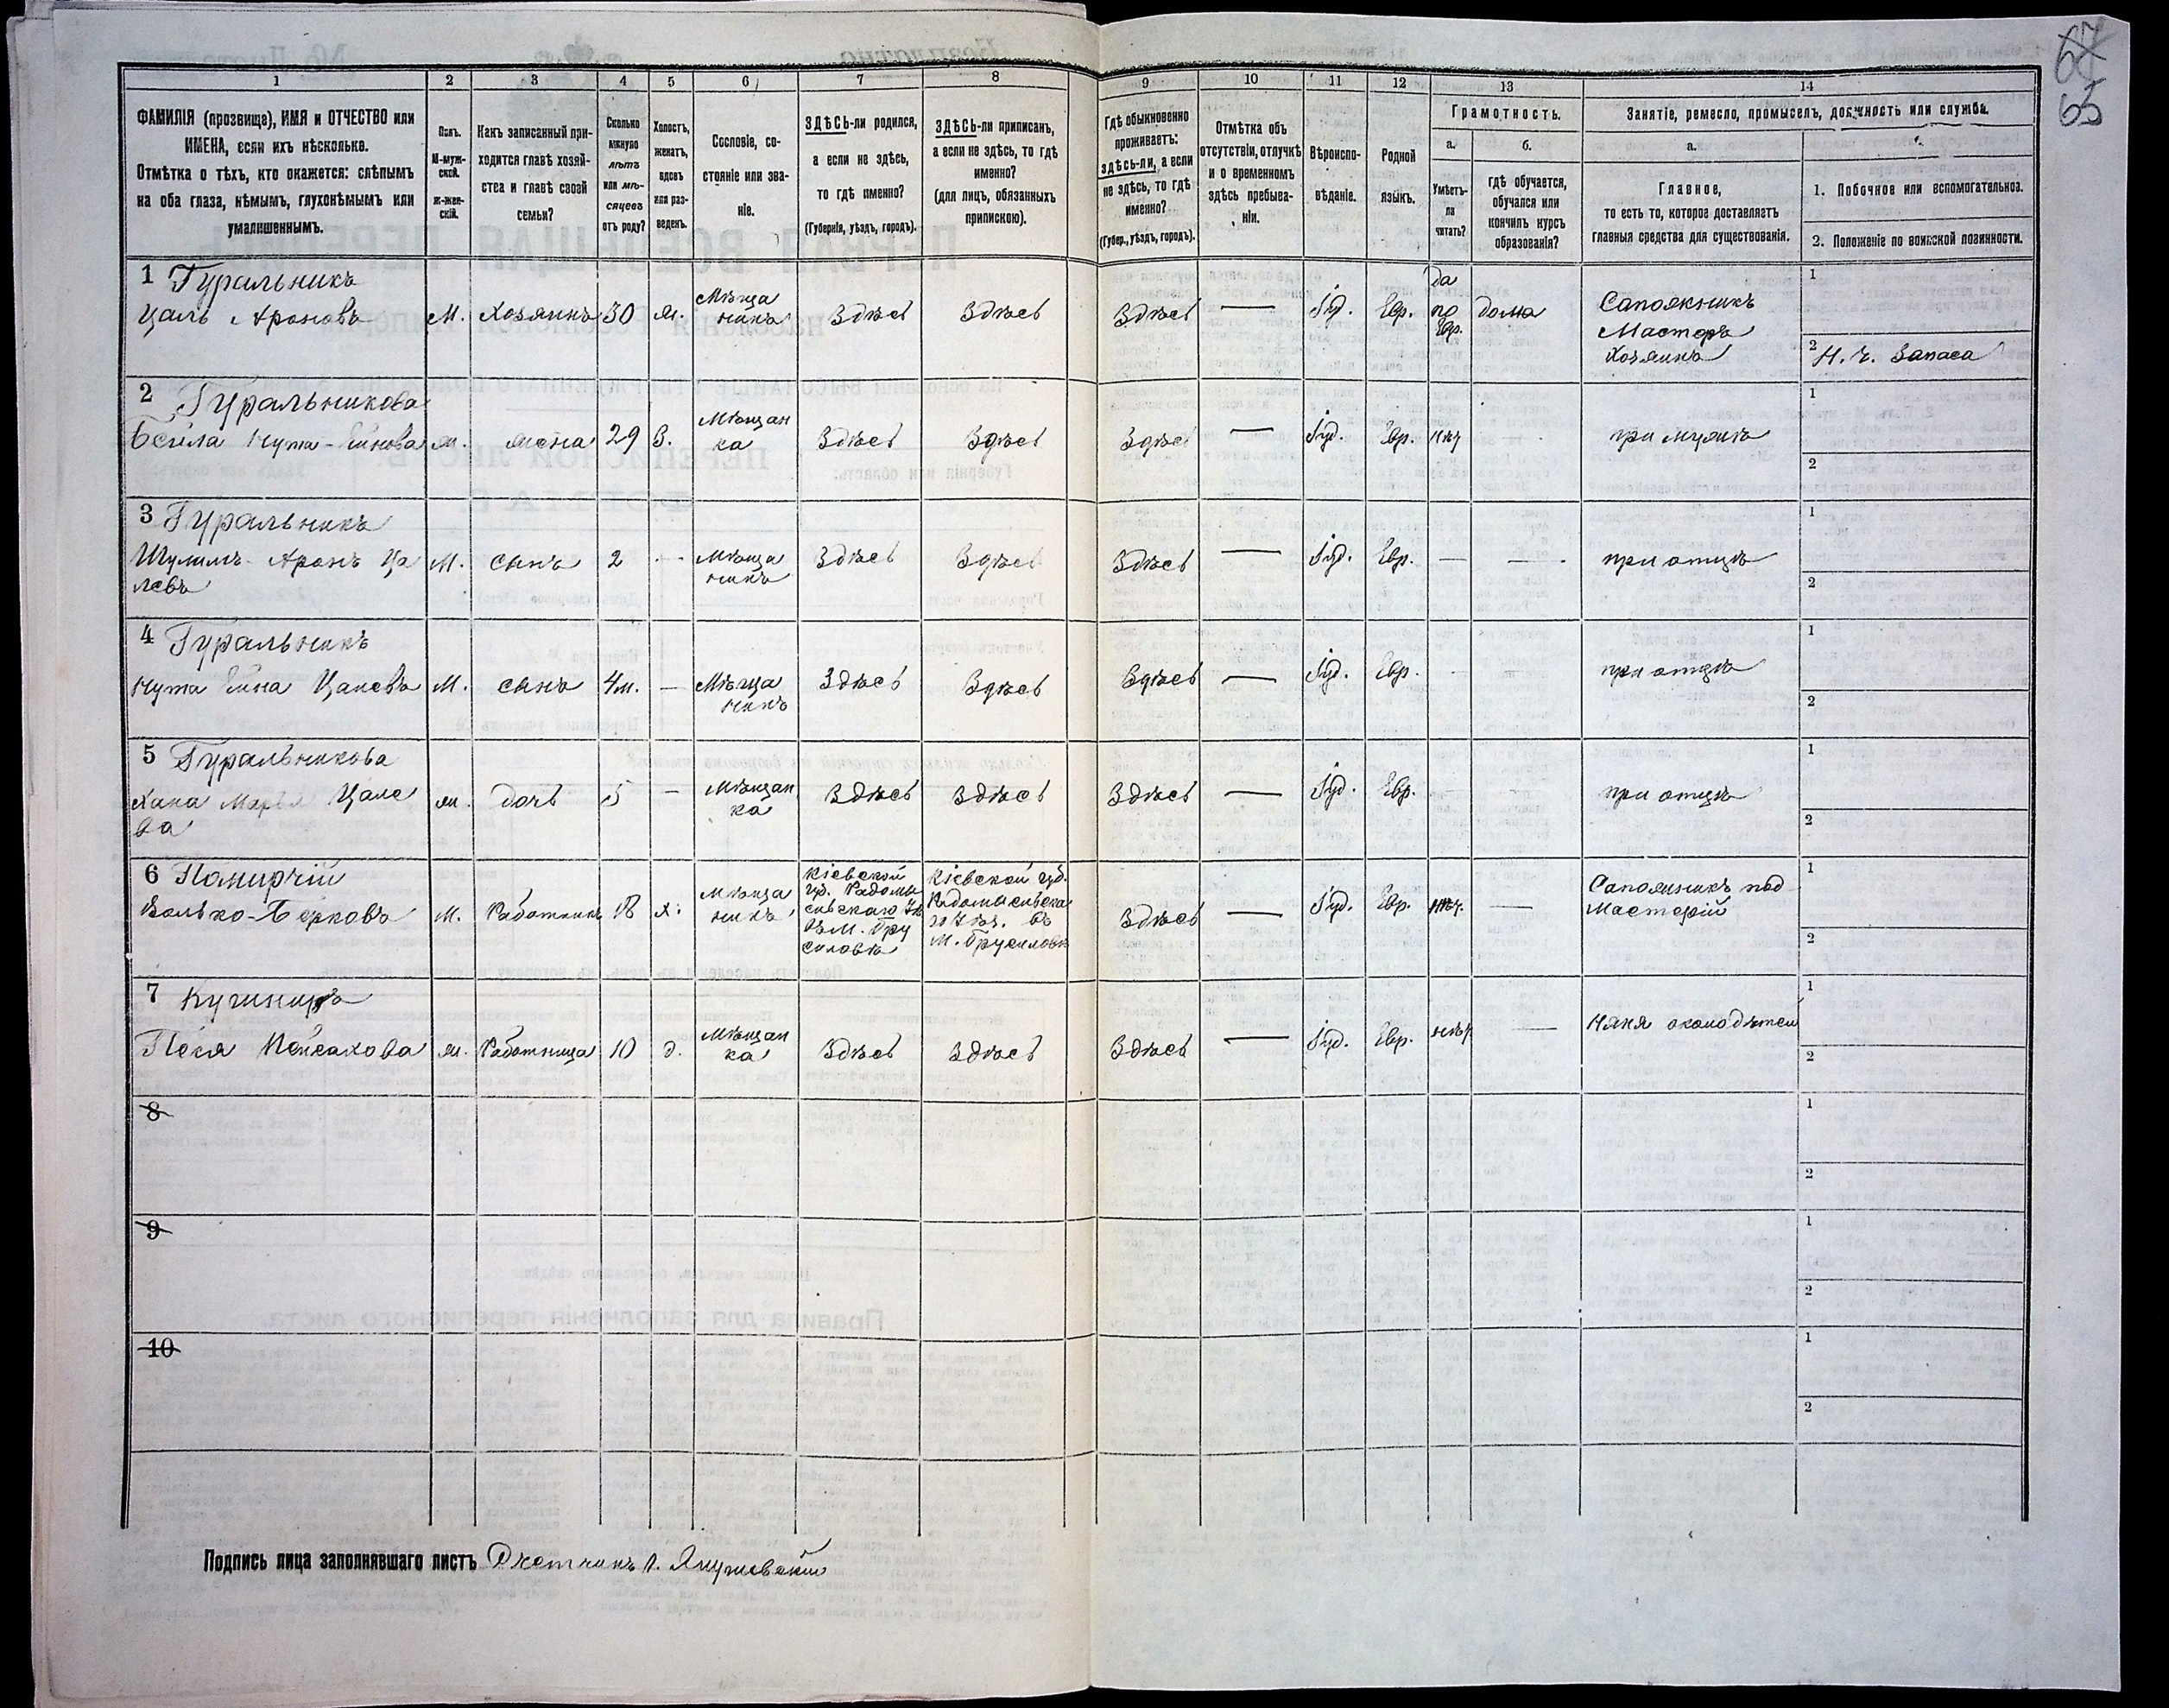 67
65
1
2
3
4
5
6
7
8
9
10
11
12
13
14
ФАМИЛІЯ (прозвище), ИМЯ и ОТЧЕСТВО или
ИМЕНА, если ихъ нѣсколько.
Отмѣтка о тѣхъ, кто окажется: слѣпымъ
на оба глаза, нѣмымъ, глухонѣмымъ или
умалишеннымъ.
Полъ.
М-муж-
ской.
ж-жен-
скій.
Какъ записанный при-
ходится главѣ хозяй-
ства и главѣ своей
семьи?
Сколько
минуло
лѣтъ
или мѣ-
сяцевъ
отъ роду?
Холостъ,
женатъ,
вдовъ
или раз-
веденъ.
Сословіе, со-
стояніе или зва-
ніе.
ЗДѢСЬ-ли родился,
а если не здѣсь,
то гдѣ именно?
(Губернія, уѣздъ, городъ).
ЗДѢСЬ-ли приписанъ,
а если не здѣсь, то гдѣ
именно?
(для лицъ, обязанныхъ
припискою).
Гдѣ обыкновенно
проживаетъ:
здѣсь-ли, а если
не здѣсь, то гдѣ
именно?
(Губер., уѣздъ, городъ).
Отмѣтка объ
отсутствіи, отлучкѣ
и о временномъ
здѣсь пребыва-
ніи.
Вѣроиспо-
вѣданіе.
Родной
языкъ.
Грамотность.
а.
Умѣетъ-
ли
читать?
б.
гдѣ обучается,
обучался или
кончилъ курсъ
образованія?
Занятіе, ремесло, промыселъ, должность или служба.
а.
Главное,
то есть то, которое доставляетъ
главныя средства для существованія.
1. Побочное или вспомогательное.
2. Положеніе по воинской повинности.
1 Гуральникъ
Цаль Ароновъ
М.
Хозяинъ
30
ж.
Мѣща
нинъ
Здѣсь
Здѣсь
Здѣсь
—
Іуд.
Евр.
да
по
Евр.
дома
Сапожникъ
Мастеръ
Хозяинъ
1
2 Н. ч. Запаса
2 Гуральникова
Бейла Нута-Ейнова
ж.
жена
29
З.
Мѣщан
ка
Здѣсь
Здѣсь
Здѣсь
—
Іуд.
Евр.
нѣт
—
при мужѣ
1
2
3 Гуральникъ
Шулимъ-Аронъ Ца
левъ
М.
сынъ
2
—
Мѣща
нинъ
Здѣсь
Здѣсь
Здѣсь
—
Іуд.
Евр.
—
—
при отцѣ
1
2
4 Гуральникъ
Нута Ейна Цалевъ
М.
сынъ
4м.
—
Мѣща
нинъ
Здѣсь
Здѣсь
Здѣсь
—
Іуд.
Евр.
при отцѣ
1
2
5 Гуральникова
Хана Цале
ва
ж.
дочь
5
—
Мѣщан
ка
Здѣсь
Здѣсь
Здѣсь
—
Іуд.
Евр.
при отцѣ
1
2
6
Волько-Берковъ
М.
Работникъ
18
х.
Мѣща
нинъ
Кіевской
губ. Радомы
сльскаго Уѣ
въ М. Бру
силовѣ
Кіевской губ.
Радомысльска
го Уѣз. въ
М. Брусиловѣ
Здѣсь
—
Іуд.
Евр.
нѣт.
—
Сапожникъ под
мастерій
1
2
7
Песя Пейсахова
ж.
Работница
10
д.
Мѣщан
ка
Здѣсь
Здѣсь
Здѣсь
—
Іуд.
Евр.
нѣт
—
Няня около дѣтей
1
2
8
1
2
9
1
2
10
1
2
Подпись лица заполнявшаго листъ Счетчикъ